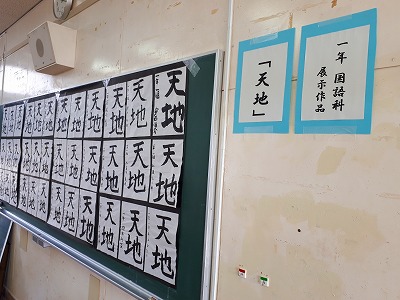 一年 国語科
展示作品
「天地」
天地 天地 天地 天地 天地 天地 天地 天地 天地 天地
天地 天地 天地 天地 天地 天地 天地 天地 天地 天地
天地 天地 天地 天地 天地 天地 天地 天地 天地 天地